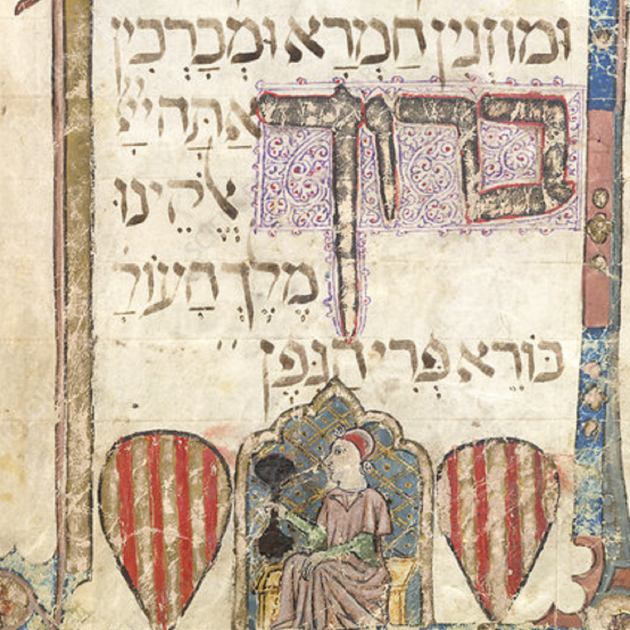 וּמוֹזְגִין חַמְרָא וּמְבָרְכִין
בָּרוּךְ אַתָּה יְיָ
אֱלֹקֵינוּ
מֶלֶךְ הָעוֹלָ
בּוֹרֵא פְּרִי הַגֶּפֶן